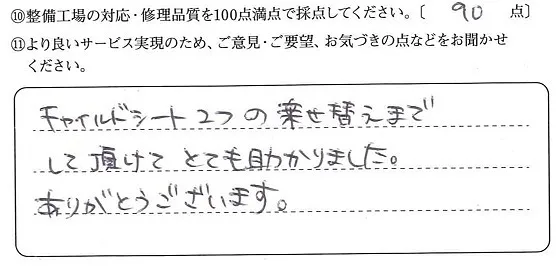 ⑩整備工場の対応・修理品質を100点満点で採点してください。〔 90 点〕
⑪より良いサービス実現のため、ご意見・ご要望、お気づきの点などをお聞かせ
ください。
チャイルドシート2つの乗せ替えまで
して頂けてとても助かりました。
ありがとうございます。